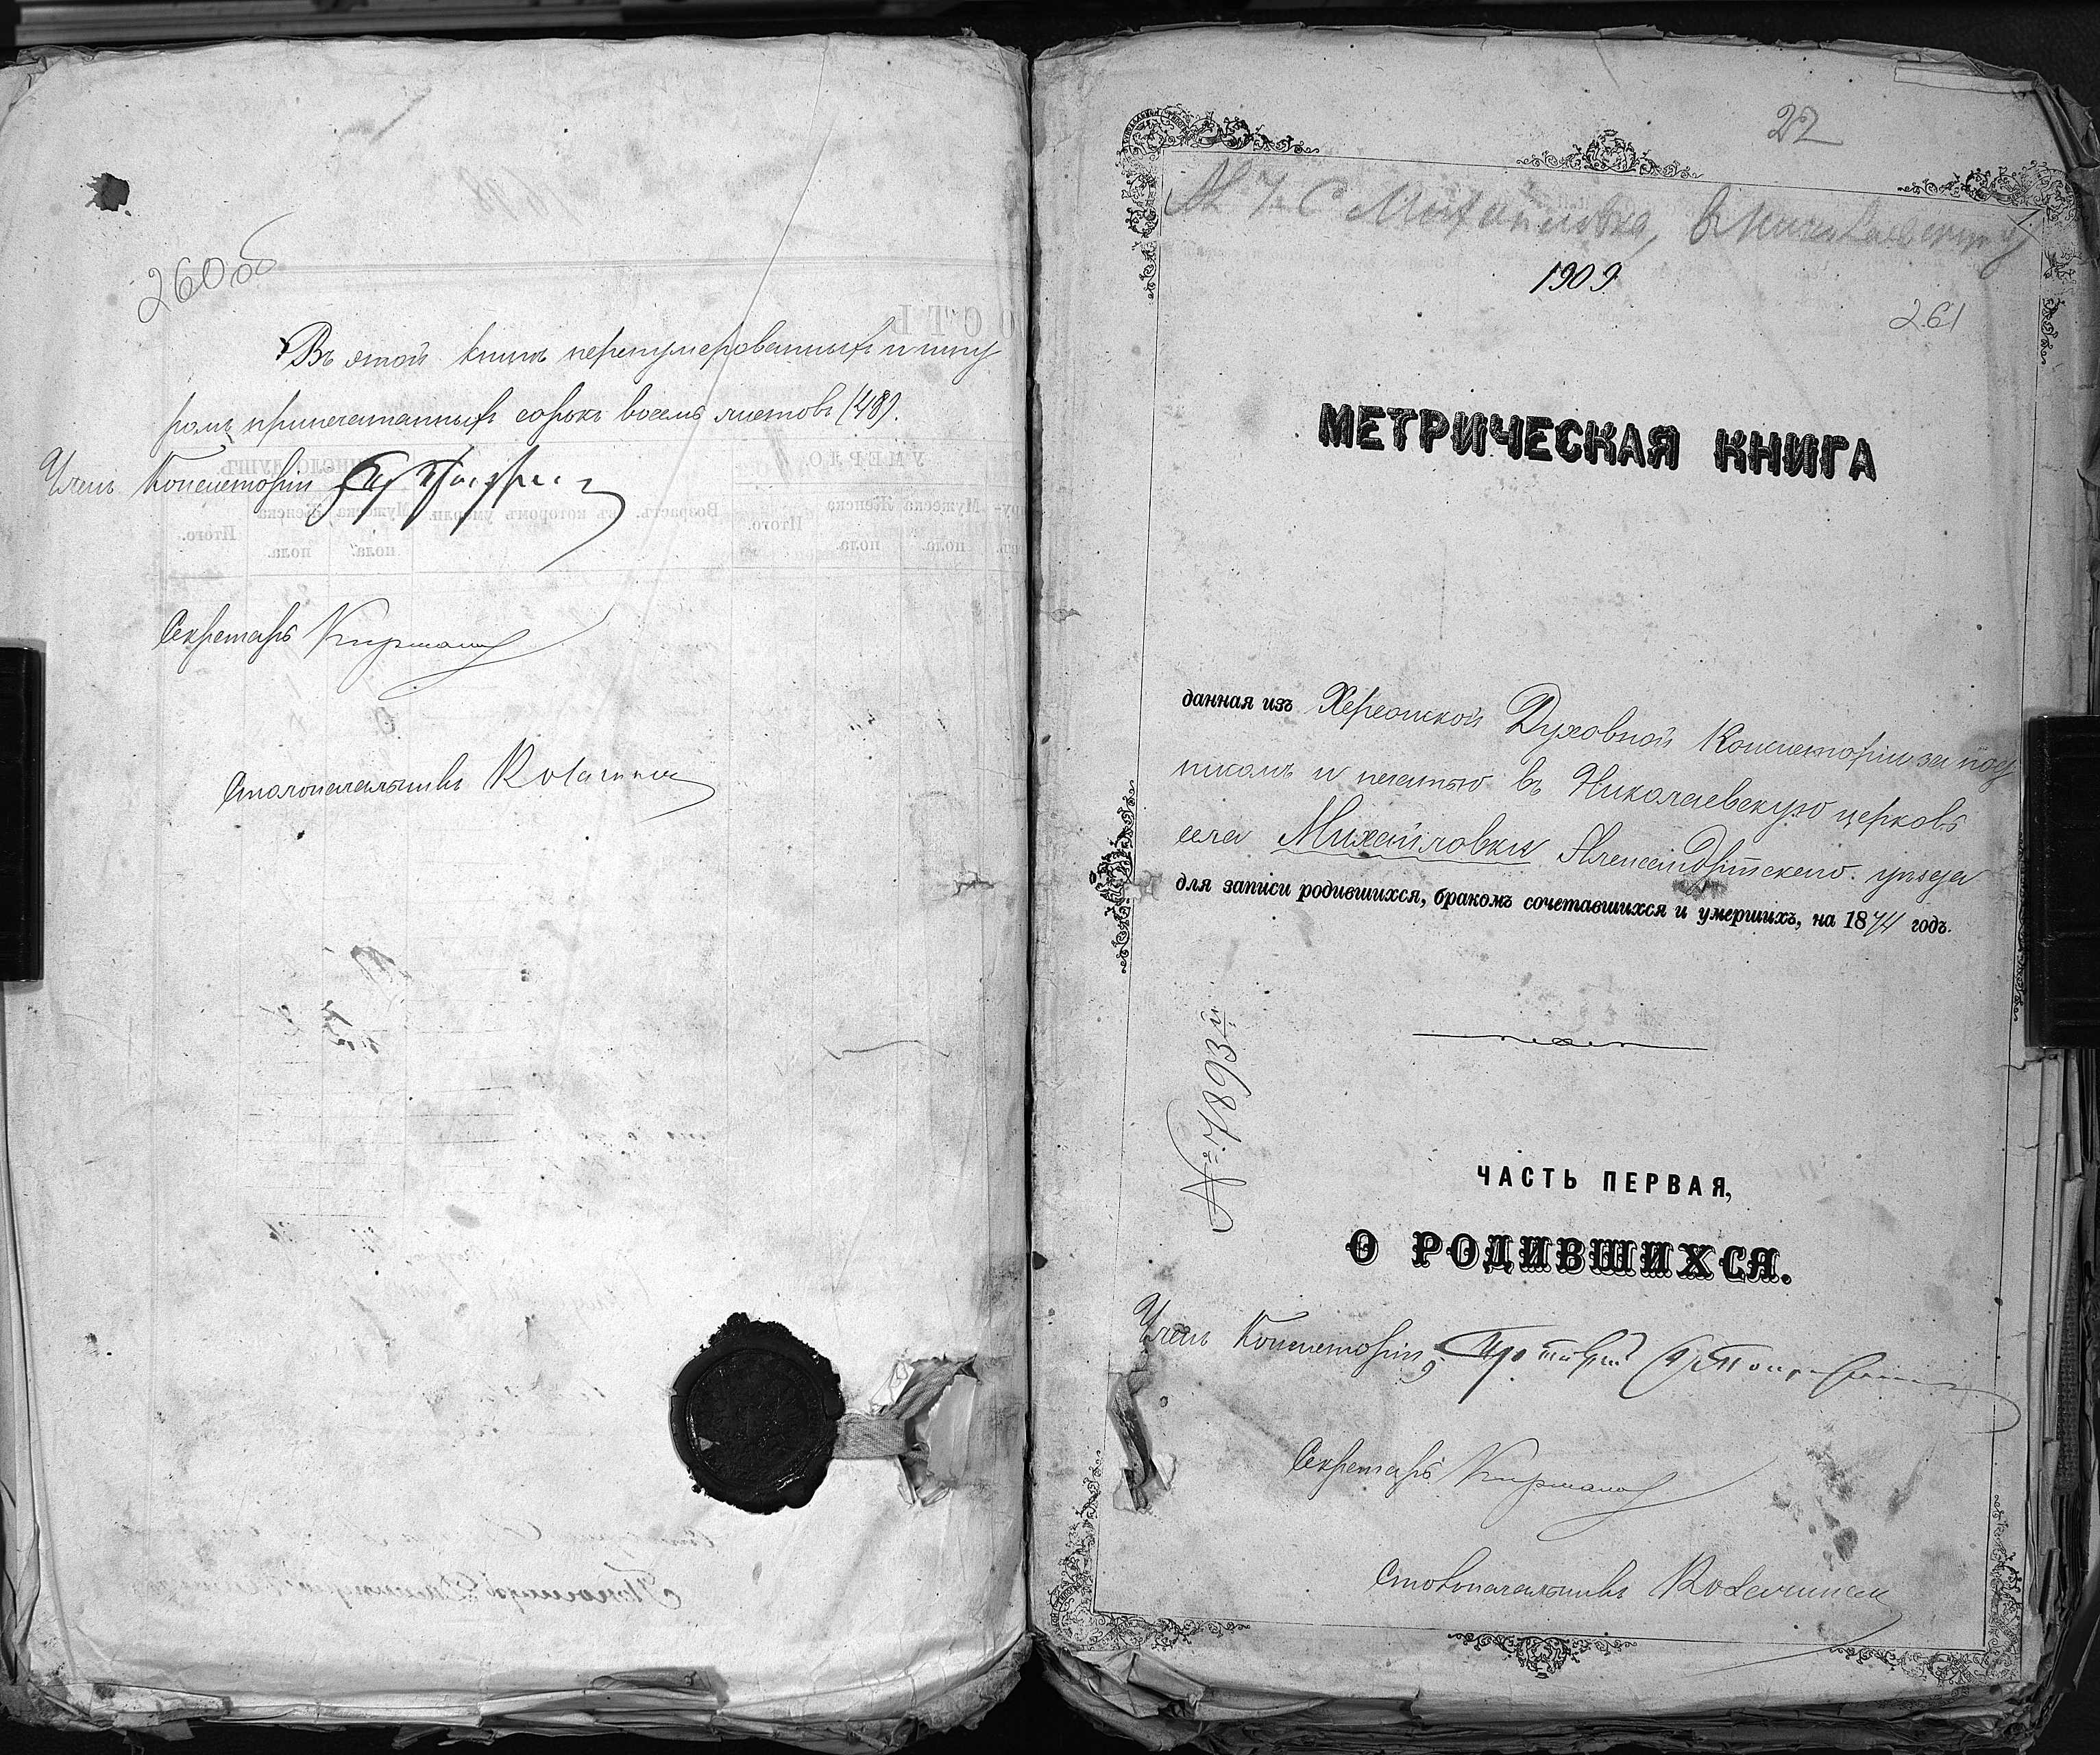 260 об
Въ этой книгѣ перенумерованныхъ и шну
ромъ припечатанныхъ сорокъ восемь листовъ (48).
Членъ Консисторіи
Секретарь
Столоначальникъ
22
С Михайловка,
1909
261
МЕТРИЧЕСКАЯ КНИГА
данная изъ Херсонской Духовной Консисторіи за под
писомъ и печатью въ Николаевскую церковь
села Михайловки Александрійскаго уѣзда
для записи родившихся, бракомъ сочетавшихся и умершихъ, на 1874 годъ.
№ 7863
ЧАСТЬ ПЕРВАЯ,
О РОДИВШИХСЯ.
Членъ Консисторіи,
Секретарь
Столоначальникъ